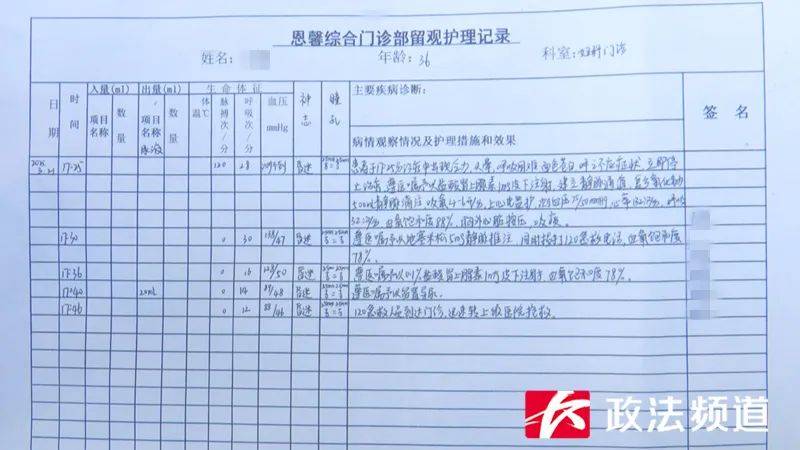 恩馨综合门诊部留观护理记录
姓名: 年龄: 36 科室: 妇科门诊
日期 时间 入量(ml) 出量(ml) 生命体征 神志 瞳孔 主要疾病诊断: 签名
项目名称 数量 项目名称 数量 体温℃ 脉搏次/分 呼吸次/分 血压mmHg 病情观察情况及护理措施和效果
尿液
17:25 120 28 昏迷 患者于17:25 出现 呼吸困难 面色苍白 呼之不应症状 立即停
遵医嘱予以盐酸肾上腺素1mg皮下注射, 建立静脉通道, 复方氯化钠
500ml静脉滴注, 吸氧4-6L/分, 上心电监护
32次/分, 血氧饱和度98%, 胸外心脏按压
17:30 0 30 138/47 昏迷 遵医嘱予以地塞米松5mg静脉推注, 同时拨打120急救电话, 血氧饱和度
78%.
17:36 0 16 /50 昏迷 遵医嘱予以0.1%盐酸肾上腺素1mg皮下注射, 血氧饱和度78%.
17:40 20ml 0 14 /48 昏迷 遵医嘱予以留置导尿.
17:46 0 12 88/46 昏迷 120急救人员到达门诊, 迅速转上级医院抢救.
政法频道